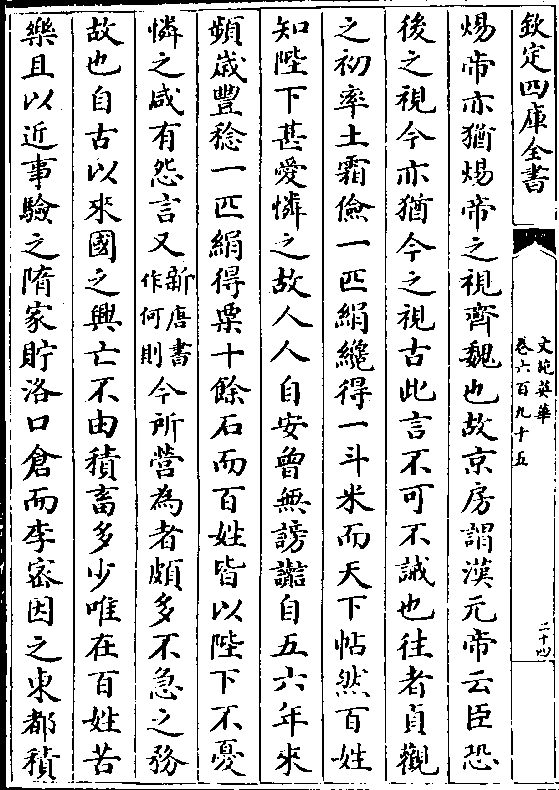 欽定四庫全書
文苑英華
卷六百九十五
二十四
煬帝亦猶煬帝之視齊魏也故京房謂漢元帝云臣恐
後之視今亦猶今之視古此言不可不誡也往者貞觀
之初率土霜儉一匹絹纔得一斗米而天下帖然百姓
知陛下甚愛憐之故人人自安曾無謗讟自五六年來
頻歲豐稔一匹絹得粟十餘石而百姓皆以陛下不憂
憐之咸有怨言又新唐書作何則今所營為者頗多不急之務
故也自古以來國之興亡不由積畜多少唯在百姓苦
樂且以近事驗之隋家貯洛口倉而李密因之東都積